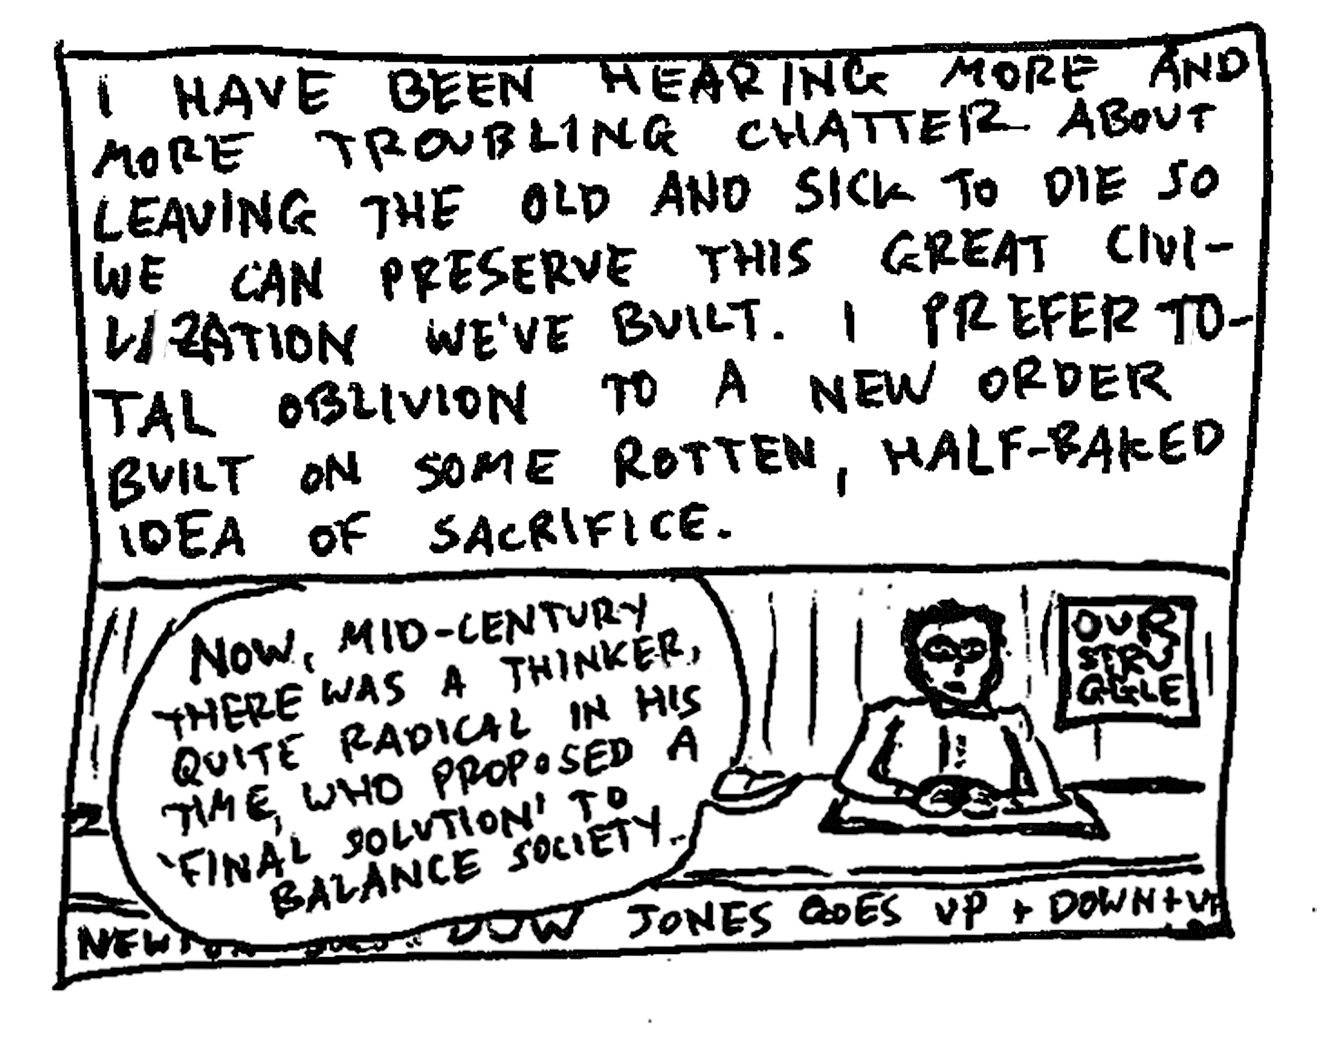 I HAVE BEEN HEARING MORE AND
MORE TROUBLING CHATTER ABOUT
LEAVING THE OLD AND SICK TO DIE SO
WE CAN PRESERVE THIS GREAT CIVI-
LIZATION WE'VE BUILT. I PREFER TO-
TAL OBLIVION TO A NEW ORDER
BUILT ON SOME ROTTEN, HALF-BAKED
IDEA OF SACRIFICE.
NOW, MID-CENTURY
THERE WAS A THINKER,
QUITE RADICAL IN HIS
TIME, WHO PROPOSED A
'FINAL SOLUTION' TO
BALANCE SOCIETY.
OUR
STRU
GGLE
DOW JONES GOES UP + DOWN + UP